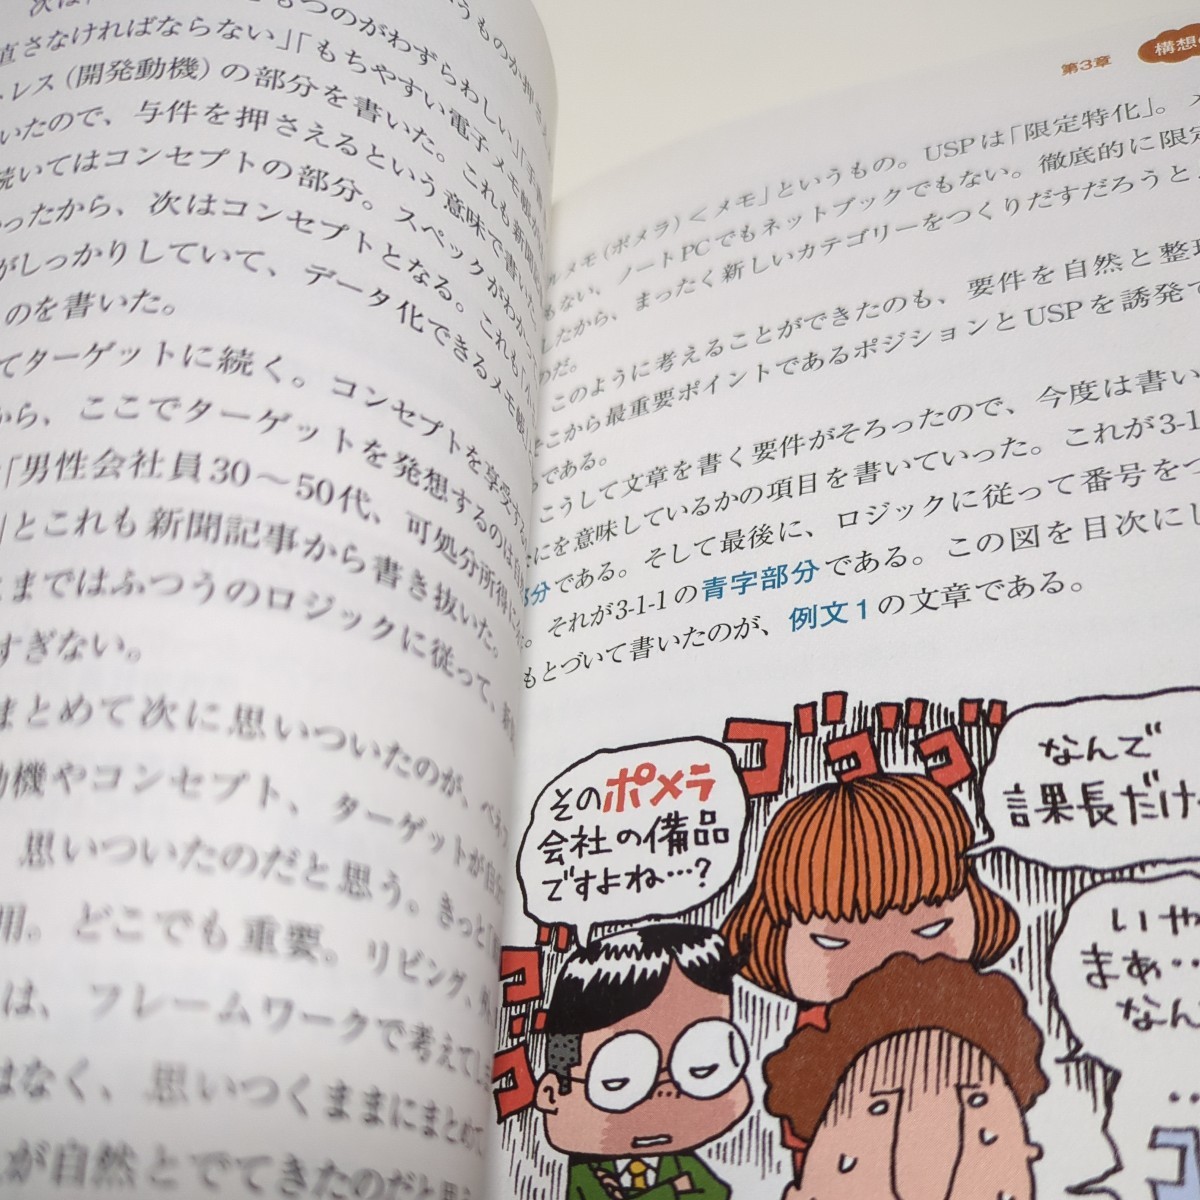 うものか押さ
次は
つのがわずらわしい」「手書
直さなければならない」「もちやすい電子メモ帳が
トレス(開発動機)の部分を書いた。これも新聞
いたので、与件を押さえるという意味で書いた。
続いてはコンセプトの部分。スペックがわかっ
ったから、次はコンセプトとなる。これも「
がしっかりしていて、データ化できるメモ帳」
のを書いた。
てターゲットに続く。コンセプトを享受する
から、ここでターゲットを発想するのは自
「男性会社員30〜50代、可処分所得に
」とこれも新聞記事から書き抜いた。
まではふつうのロジックに従って、
すぎない。
まとめて次に思いついたのが、ベネフ
動機やコンセプト、ターゲットが自
思いついたのだと思う。きっと
用。どこでも重要。リビング、
は、フレームワークで考えて
はなく、思いつくままにまとめて
が自然とでてきたのだと思
第3章 構想
ルメモ(ポメラ)<メモ」というもの。USPは「限定特化」。
もない、ノートPCでもネットブックでもない。徹底的に限定
したから、まったく新しいカテゴリーをつくりだすだろうと、
のだ。
このように考えることができたのも、要件を自然と整理
そこから最重要ポイントであるポジションとUSPを誘発で
である。
こうして文章を書く要件がそろったので、今度は書い
なにを意味しているかの項目を書いていった。これが3-1
部分である。そして最後に、ロジックに従って番号をつ
。それが3-1-1の青字部分である。この図を目次にし
もとづいて書いたのが、例文1の文章である。
そのポメラ
会社の備品
ですよね…?
ゴゴゴゴ
なんで
課長だけ
いや
まぁ‥
なん
‥
ゴ
ゴ
コ